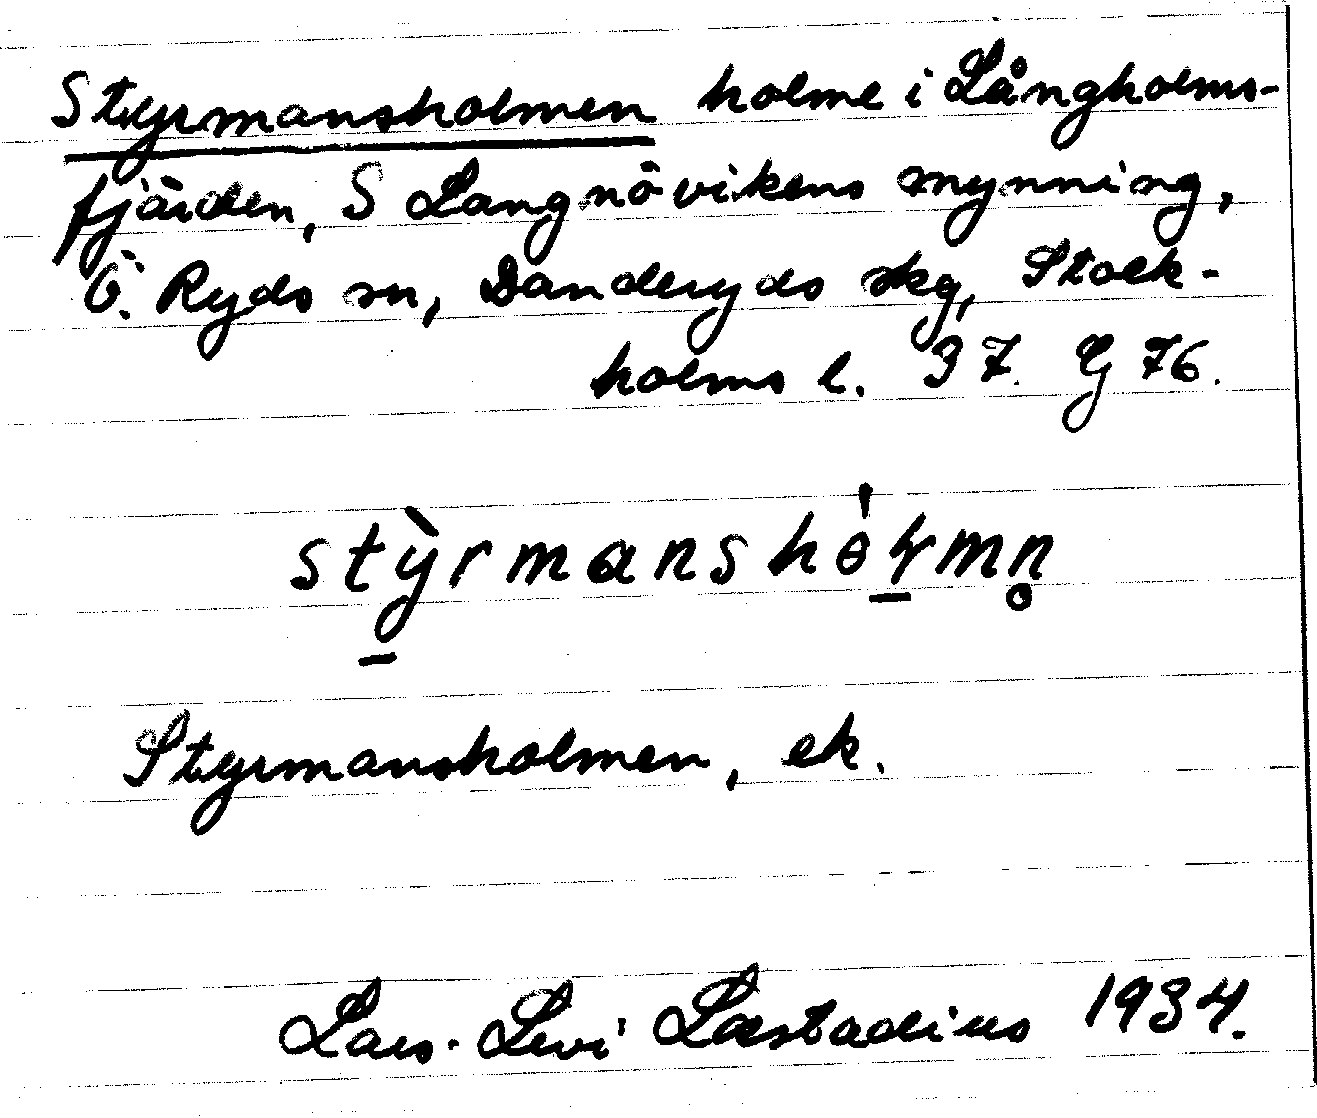 Styrmansholmen holme i Långholms-
fjärden, S Langnövikens mynning,
Ö. Ryds sn, Danderyds skg, Stock-
holms l. 37. G 76.
stỳrmanshólmn̥
Styrmansholmen, ek.
Lars-Levi Læstadius 1934.